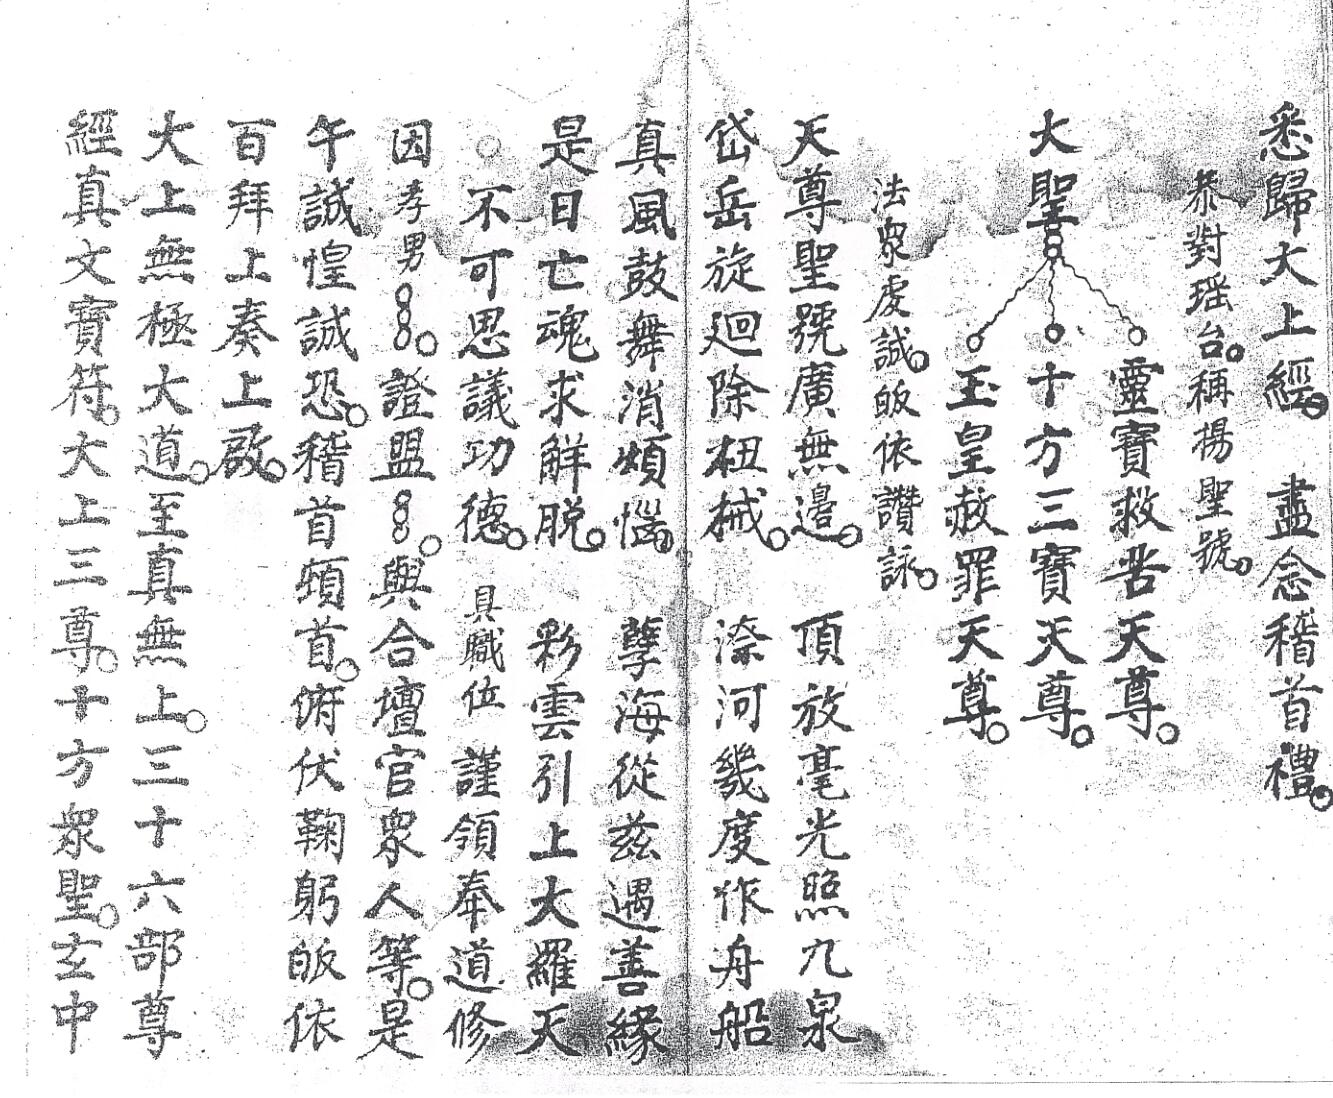 悉歸大上經。　盡念稽首禮。
恭對瑶台。稱揚聖號。
大聖
靈寶救苦天尊。
十方三寶天尊。
玉皇赦罪天尊。
法衆虔誠。皈依讚詠。
天尊聖號廣無邊。　頂放毫光照九泉
岱岳旋迴除杻械。　㮈河幾度作舟船
真風鼓舞消煩惱。　孽海從兹遇善緣
是日亡魂求解脱。　彩雲引上大羅天
○不可思議功德。　具職位　謹領奉道修
因孝男。證盟。與合壇官衆人等。是
午誠惶誠恐。稽首頓首。俯伏鞠躬皈依
百拜上奏上啟。
大上無極大道。至真無上。三十六部尊
經真文寶符。大上三尊。十方衆聖。玄中